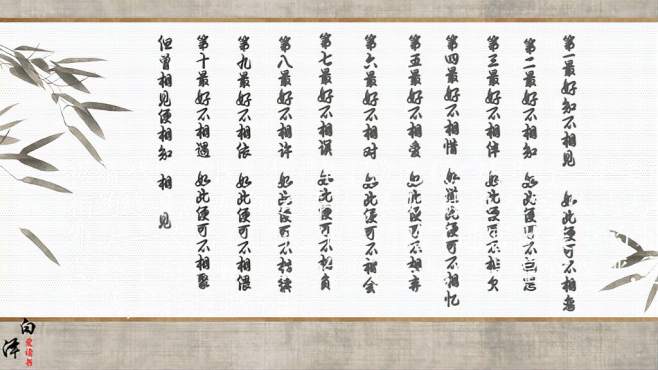 第一最好知不相见 如此便可不相恋
第二最好不相知 如此便可不相思
第三最好不相伴 如此便可不相欠
第四最好不相惜 如此便可不相忆
第五最好不相爱 如此便可不相弃
第六最好不相对 如此便可不相会
第七最好不相误 如此便可不相负
第八最好不相许 如此便可不相续
第九最好不相依 如此便可不相偎
第十最好不相遇 如此便可不相聚
但曾相见便相知 相 见
白泽
爱读书